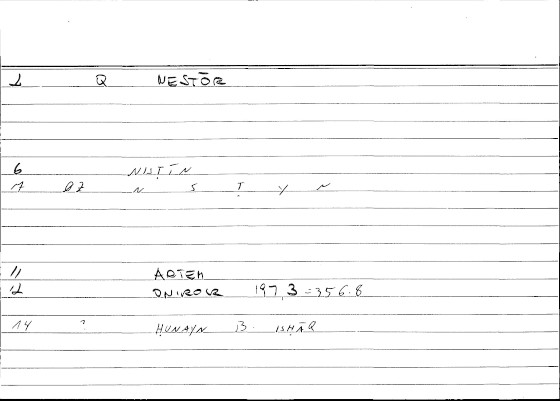 1 Q NESTŌR
6 NISṬĪN
7 QZ N S Ṭ Y N
11 ARTEM
12 ONIROCR 197,3 = 356.8
14 ? ḤUNAYN B. ISḤĀQ